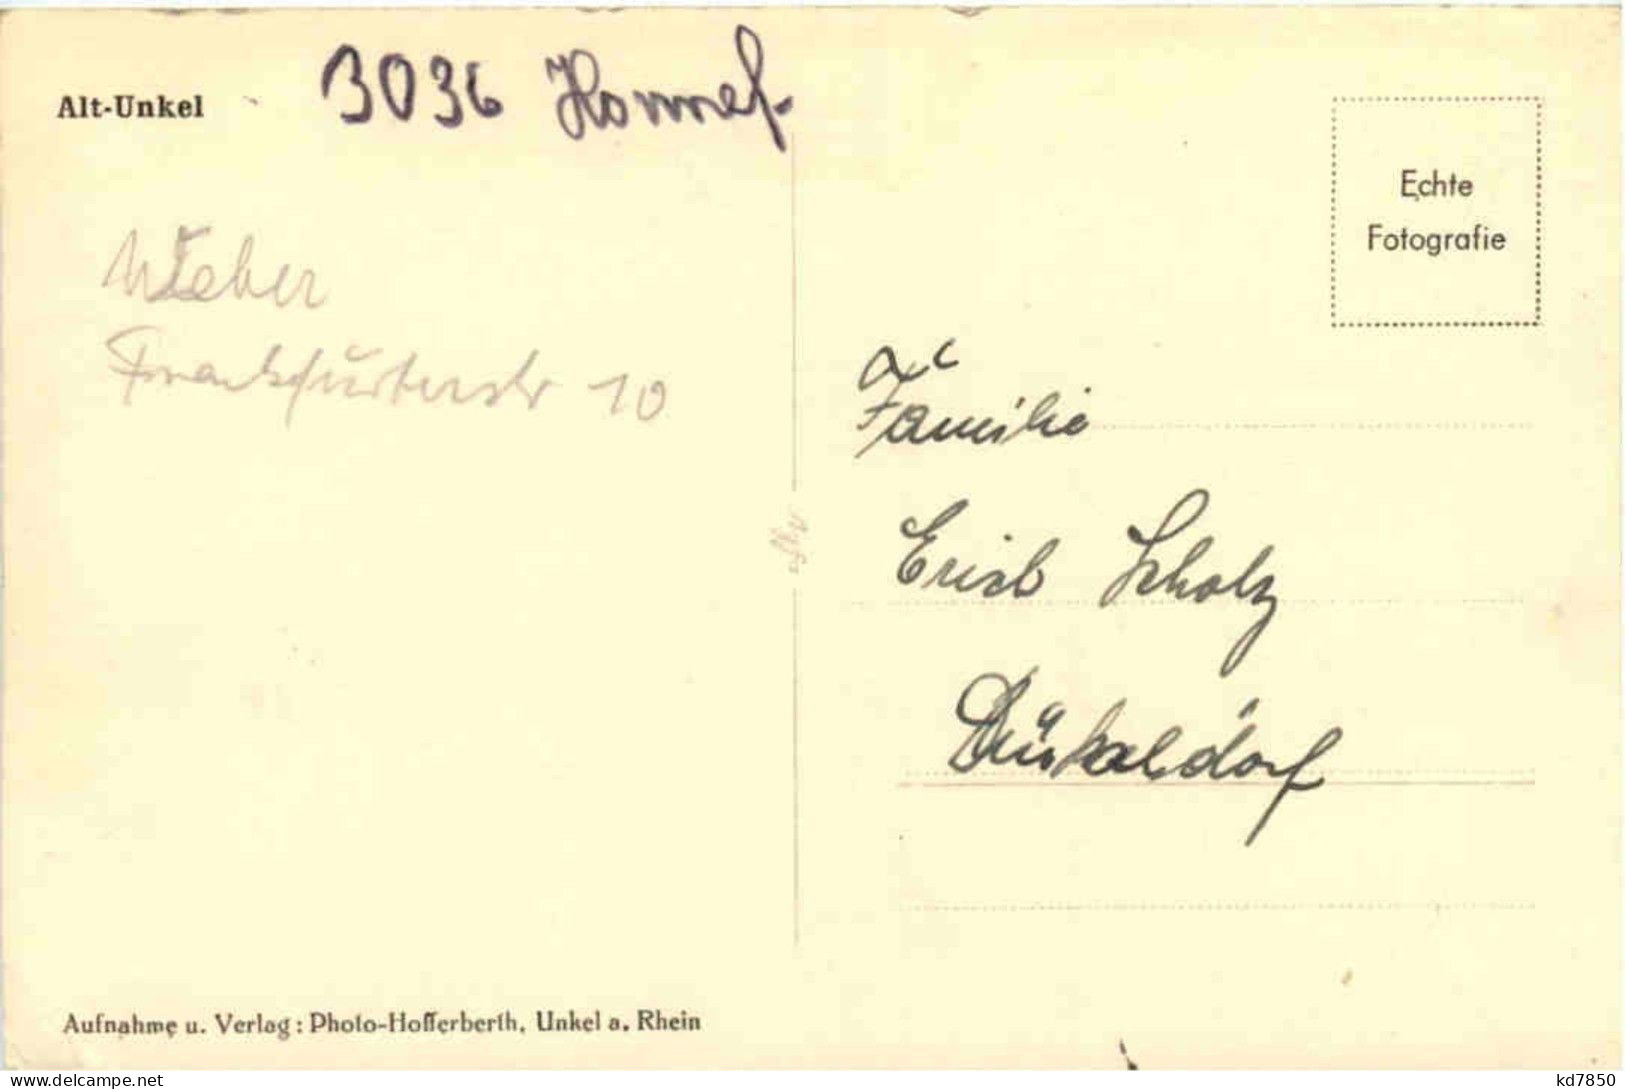 Alt-Unkel
3036 Honnef.
Weber
Frankfurterstr 10
Echte
Fotografie
Familie
Erich Scholz
Aufnahme u. Verlag: Photo-Hofferberth, Unkel a. Rhein
www.delcampe.net
kd7850